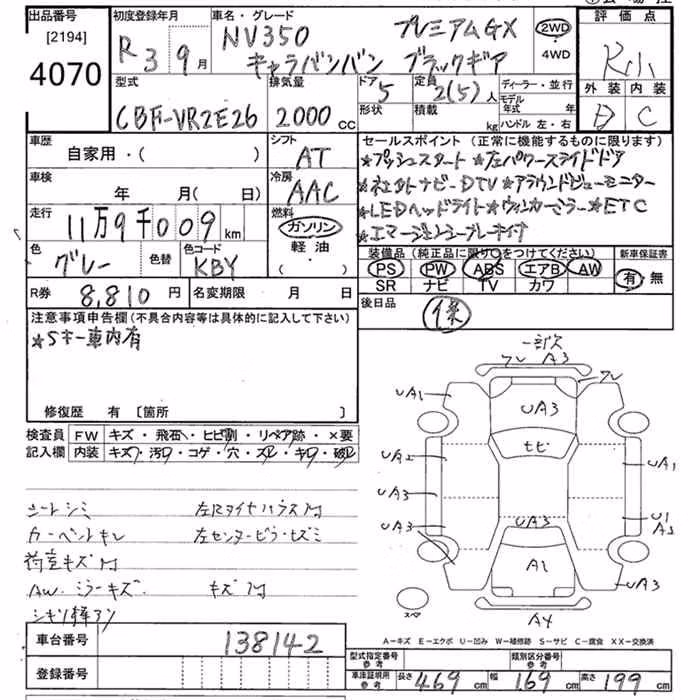 出品番号
[2194]
4070
初度登録年月
R 3 9月
車名・グレード
NV350 プレミアムGX
キャラバンバン ブラックギア
2WD
・
4WD
評価点
外装 内装
D C
型式
CBF-VR2E26
排気量
2000 CC
ドア
5
形状
定員
2(5)人
積載
kg
ディーラー・並行
モデル年式 年
ハンドル 左・右
車歴
自家用・( )
シフト
AT
車検
年 月(日)
冷房
AAC
走行
11万9千009 km
燃料
ガソリン
軽油
・( )
色
グレー
色替
色コード
KBY
R券 8,810円
名変期限 月 日
セールスポイント(正常に機能するものに限ります)
★プッシュスタート ★左パワースライドドア
★社外ナビーDTV ★アラウンドビューモニター
★LEDヘッドライト ★ウィンカーミラー ★ETC
★エマージェンシーブレーキ付
装備品(純正品に限り○をつけてください)
PS PW ABS エアB AW
SR ナビ TV カワ
新車保証書
有・無
後日品
注意事項申告欄(不具合内容等は具体的に記入して下さい)
★Sキー車内有
修復歴 有 [箇所 ]
検査員
記入欄
FW キズ・飛石・ヒビ割・リペア跡・×要
内装 キズ・汚レ・コゲ・穴・スレ・キレ・破レ
シートシミ
カーペットキレ
荷室キズ
AW、ミラーキズ
キズ
一部欠
A3
UA1
UA3
ヒビ
UA2
UA1
UA3
UA3
UA3
U1
A1
UA3
A4
スペア
A-キズ E-エクボ U-凹み W-補修跡 S-サビ C-腐食 XX-交換済
車台番号 138142
登録番号
型式指定番号 参考
類別区分番号 参考
車庫証明用 参考
長さ 469 cm 幅 169 cm 高さ 199 cm